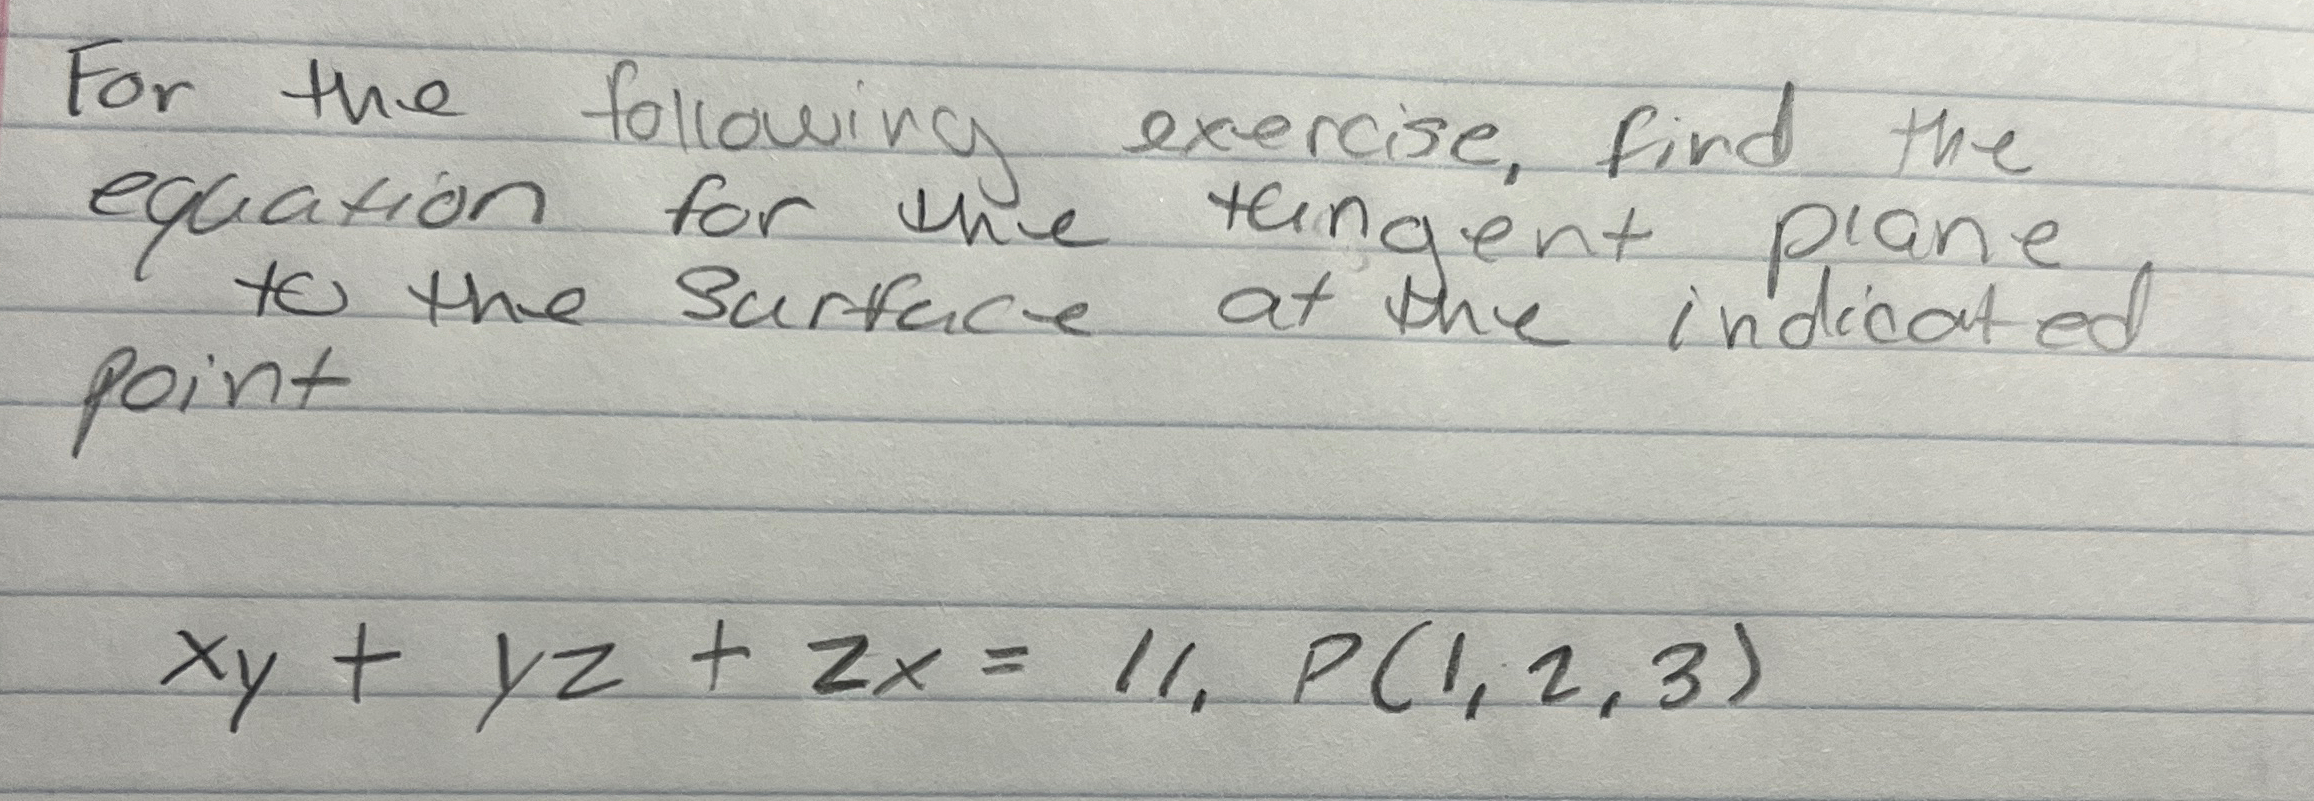 For the following exercise, find the
equation for the tangent plane
to the surface at the indicated
point
xy + yz + zx = 11, P(1, 2, 3)